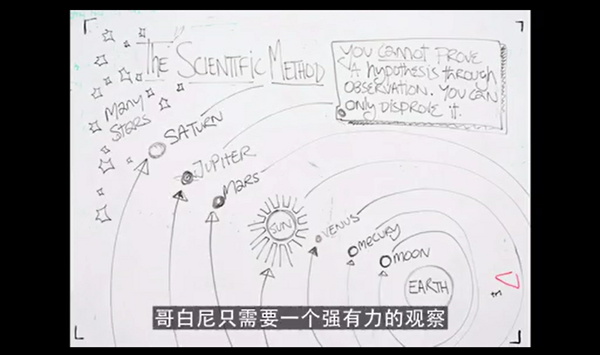 The Scientific Method
You cannot prove
A hypothesis through
observation. You can
only disprove it.
Many
Stars
SATURN
JUPITER
MARS
SUN
VENUS
MERCURY
MOON
EARTH
哥白尼只需要一个强有力的观察